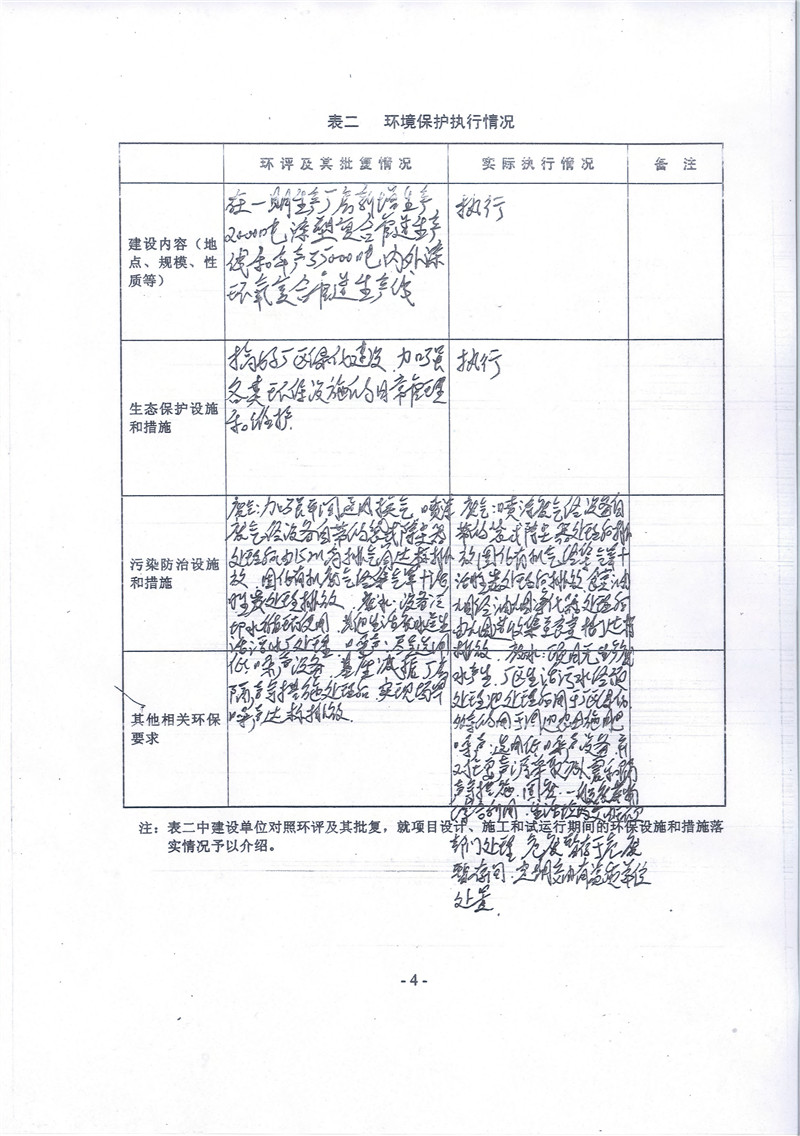 表二 环境保护执行情况
环评及其批复情况 实际执行情况 备 注
建设内容（地
点、规模、性
质等）
在一期生产厂房新增年产
20000吨涂塑复合管道生产
线和年产35000吨内外涂
环氧复合管道生产线
执行
生态保护设施
和措施
搞好厂区绿化建设，加强
各类环保设施的日常管理
和维护
执行
污染防治设施
和措施
废气：加强车间通风换气，喷涂
废气经设备自带的袋式除尘器
处理后由15m高排气筒达标排
放，固化有机废气经集气罩+活
性炭处理排放，废水：设备冷
却水循环使用，其他生活废水送生
活污水厂处理，噪声：尽量选用
低噪声设备，基座减振，厂房
隔声等措施处理后，实现场界
噪声达标排放。
废气：喷涂废气经设备自
带的袋式除尘器处理后排
放，固化有机气经集气罩+
活性炭处理后排放，食堂油
烟经油烟净化器处理后
由烟道收集至房顶排达标
排放。废水：项目无生产废
水产生，厂区生活污水经预
处理池处理后用于厂区绿化
的用于周边农田施肥
噪声：选用低噪声设备，并
对产噪声源采取减震和隔
声等措施，固废：一般废弃物
综合利用，生活垃圾
部门处理，危废暂存于危废
暂存间，定期交由有资质单位
处置。
其他相关环保
要求
注：表二中建设单位对照环评及其批复，就项目设计、施工和试运行期间的环保设施和措施落
实情况予以介绍。
- 4 -